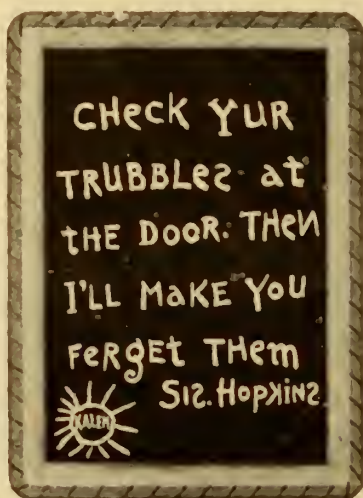 CHecK YUR
TRUBBLes at
tHE DOOR. THeN
I'LL MaKE YoU
FeRGEt THem
SIS. HopKiNs
KALEM